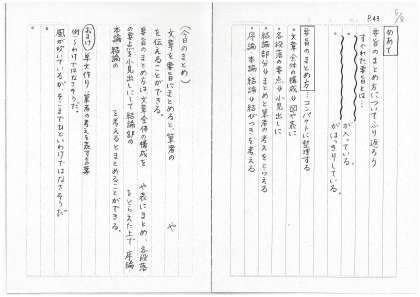 5/8
P.43
めあて
要旨のまとめ方についてふり返ろう
すぐれた要旨とは…
が入っている。
がはっきりしている。
要旨のまとめ方 コンパクトに整理する
・文章全体の構成→図や表に
・各段落の要点→小見出しに
・結論部分→まとめと筆者の考えをとらえる
・序論 本論 結論→結びつきを考える
（今日のまとめ）
文章を要旨にまとめると、筆者の や
を伝えることができる。
要旨のまとめ方は、文章全体の構成を や表にまとめ、各段落
の要点を小見出しにして結論部の をとらえた上で、序論
本論 結論の を考えるとまとめることができる。
おまけ 短文作り 筆者の考えを表す言葉
例 ～わけではなさそうだ。
・風が吹いているが、そこまでひどいわけではなさそうだ